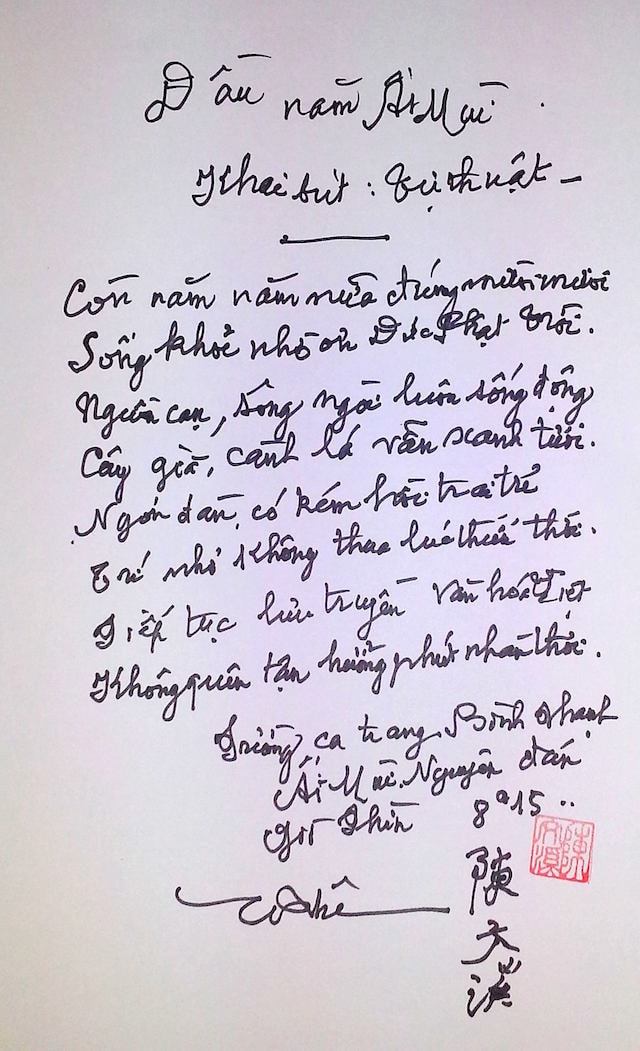 Đầu năm Ất Mùi
Khai bút : Tự thuật –
Còn năm năm nữa đúng mười mươi
Sống khoẻ nhờ ơn Đức Phật Trời.
Nguồn cạn, sông ngòi luôn sống động
Cây già, cành lá vẫn xanh tươi.
Ngón đàn, có kém hồi trai trẻ
Trí nhớ không thua lúc thiếu thời.
Tiếp tục lưu truyền văn hoá Việt
Không quên tận hưởng phút nhàn thơi.
Trường ca trang Bình Thạnh
Ất Mùi Nguyên đán
Giờ Thìn 8g15
Khê
陳文溪